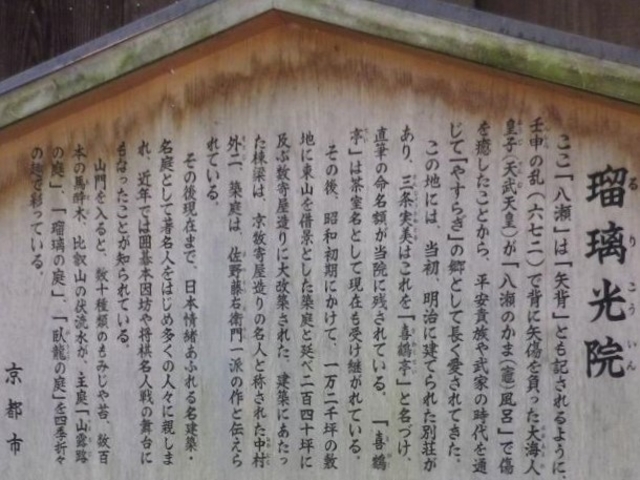 瑠璃光院
るりこういん
ここ「八瀬」は「矢背」とも記されるように、
壬申の乱(六七二)で背に矢傷を負った大海人
皇子(天武天皇)が「八瀬のかま(竈)風呂」で傷
を癒したことから、平安貴族や武家の時代を通
じて「やすらぎ」の郷として長く愛されてきた。
この地には、当初、明治に建てられた別荘が
あり、三条実美はこれを「喜鶴亭」と名づけ、
直筆の命名額が当院に残されている。「喜鶴
亭」は茶室名として現在も受け継がれている。
その後、昭和初期にかけて、一万二千坪の敷
地に東山を借景とした築庭と延べ二百四十坪に
及ぶ数寄屋造りに大改築された。建築にあたっ
た棟梁は、京数寄屋造りの名人と称された中村
外二、築庭は、佐野藤右衛門一派の作と伝えら
れている。
その後現在まで、日本情緒あふれる名建築・
名庭として著名人をはじめ多くの人々に親しま
れ、近年では囲碁本因坊や将棋名人戦の舞台に
もなったことが知られている。
山門を入ると、数十種類のもみじや苔、数百
本の馬酔木、比叡山の伏流水が、主庭「山露路
の庭」、「瑠璃の庭」、「臥龍の庭」を四季折々
の趣で彩っている。
京都市